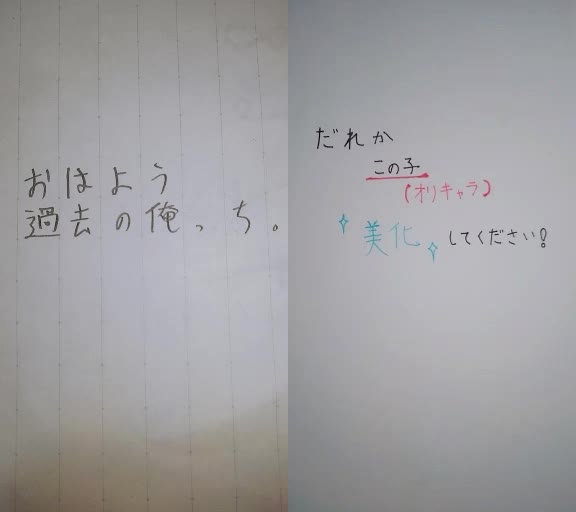 おはよう
過去の俺っち。
だれか
この子
(オリキャラ)
美化してください!